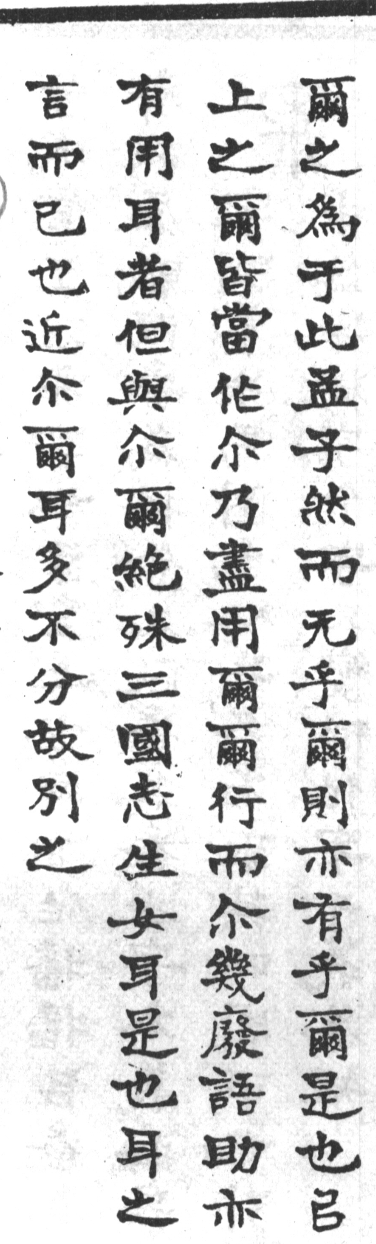 爾之爲于此孟子然而无乎爾則亦有乎爾是也㠯
上之爾皆當作尒乃盡用爾爾行而尒幾廢語助亦
有用耳者但與尒爾絶殊三國志生女耳是也耳之
言而已也近尒爾耳多不分故別之